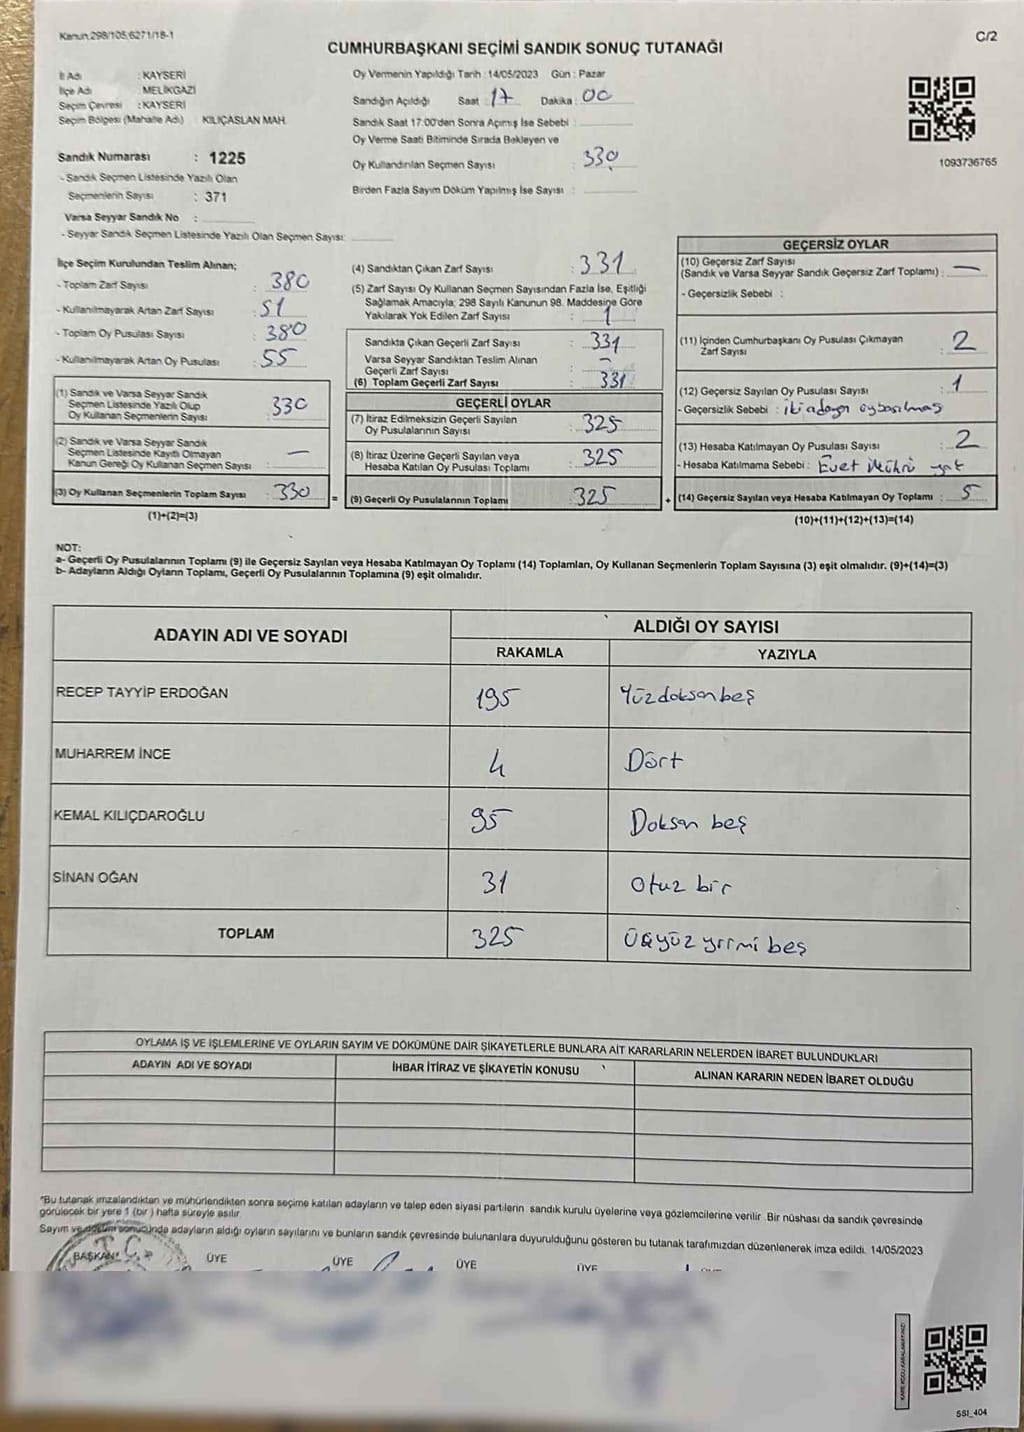 Kanun.298/105,6271/18-1
C/2
CUMHURBAŞKANI SEÇİMİ SANDIK SONUÇ TUTANAĞI
İl Adı : KAYSERİ
İlçe Adı : MELİKGAZİ
Seçim Çevresi : KAYSERİ
Seçim Bölgesi (Mahalle Adı) KILIÇASLAN MAH.
Sandık Numarası : 1225
- Sandık Seçmen Listesinde Yazılı Olan
Seçmenlerin Sayısı : 371
Varsa Seyyar Sandık No :
- Seyyar Sandık Seçmen Listesinde Yazılı Olan Seçmen Sayısı:
Oy Vermenin Yapıldığı Tarih : 14/05/2023 Gün : Pazar
Sandığın Açıldığı Saat : 17 Dakika : 00
Sandık Saat 17:00'den Sonra Açımış İse Sebebi :
Oy Verme Saati Bitiminde Sırada Bekleyen ve
Oy Kullandırılan Seçmen Sayısı : 330
Birden Fazla Sayım Döküm Yapılmış İse Sayısı :
1093736765
İlçe Seçim Kurulundan Teslim Alınan;
- Toplam Zarf Sayısı : 380
- Kullanılmayarak Artan Zarf Sayısı : 51
- Toplam Oy Pusulası Sayısı : 380
- Kullanılmayarak Artan Oy Pusulası : 55
(1) Sandık ve Varsa Seyyar Sandık
Seçmen Listesinde Yazılı Olup
Oy Kullanan Seçmenlerin Sayısı : 330
(2) Sandık ve Varsa Seyyar Sandık
Seçmen Listesinde Kayıtlı Olmayan
Kanun Gereği Oy Kullanan Seçmen Sayısı : —
(3) Oy Kullanan Seçmenlerin Toplam Sayısı : 330
(1)+(2)=(3)
(4) Sandıktan Çıkan Zarf Sayısı : 331
(5) Zarf Sayısı Oy Kullanan Seçmen Sayısından Fazla İse, Eşitliği
Sağlamak Amacıyla; 298 Sayılı Kanunun 98. Maddesine Göre
Yakılarak Yok Edilen Zarf Sayısı : 1
Sandıkta Çıkan Geçerli Zarf Sayısı : 331
Varsa Seyyar Sandıktan Teslim Alınan
Geçerli Zarf Sayısı : –
(6) Toplam Geçerli Zarf Sayısı : 331
GEÇERLİ OYLAR
(7) İtiraz Edilmeksizin Geçerli Sayılan
Oy Pusulalarının Sayısı : 325
(8) İtiraz Üzerine Geçerli Sayılan veya
Hesaba Katılan Oy Pusulası Toplamı : 325
= (9) Geçerli Oy Pusulalarının Toplamı : 325
GEÇERSİZ OYLAR
(10) Geçersiz Zarf Sayısı
(Sandık ve Varsa Seyyar Sandık Geçersiz Zarf Toplamı) : —
- Geçersizlik Sebebi :
(11) İçinden Cumhurbaşkanı Oy Pusulası Çıkmayan
Zarf Sayısı : 2
(12) Geçersiz Sayılan Oy Pusulası Sayısı : 1
- Geçersizlik Sebebi : iki adaya oy basılmas
(13) Hesaba Katılmayan Oy Pusulası Sayısı : 2
- Hesaba Katılmama Sebebi : Evet Mührü yok
+ (14) Geçersiz Sayılan veya Hesaba Katılmayan Oy Toplamı : 5
(10)+(11)+(12)+(13)=(14)
NOT:
a- Geçerli Oy Pusulalarının Toplamı (9) ile Geçersiz Sayılan veya Hesaba Katılmayan Oy Toplamı (14) Toplamları, Oy Kullanan Seçmenlerin Toplam Sayısına (3) eşit olmalıdır. (9)+(14)=(3)
b- Adayların Aldığı Oyların Toplamı, Geçerli Oy Pusulalarının Toplamına (9) eşit olmalıdır.
ADAYIN ADI VE SOYADI
ALDIĞI OY SAYISI
RAKAMLA YAZIYLA
RECEP TAYYİP ERDOĞAN 195 Yüzdoksanbeş
MUHARREM İNCE 4 Dört
KEMAL KILIÇDAROĞLU 95 Doksan beş
SİNAN OĞAN 31 Otuz bir
TOPLAM 325 Üçyüz yirmi beş
OYLAMA İŞ VE İŞLEMLERİNE VE OYLARIN SAYIM VE DÖKÜMÜNE DAİR ŞİKAYETLERLE BUNLARA AİT KARARLARIN NELERDEN İBARET BULUNDUKLARI
ADAYIN ADI VE SOYADI İHBAR İTİRAZ VE ŞİKAYETİN KONUSU ALINAN KARARIN NEDEN İBARET OLDUĞU
*Bu tutanak imzalandıktan ve mühürlendikten sonra seçime katılan adayların ve talep eden siyasi partilerin sandık kurulu üyelerine veya gözlemcilerine verilir. Bir nüshası da sandık çevresinde
görülecek bir yere 1 (bir) hafta süreyle asılır.
Sayım ve döküm sonucunda adayların aldığı oyların sayılarını ve bunların sandık çevresinde bulunanlara duyurulduğunu gösteren bu tutanak tarafımızdan düzenlenerek imza edildi. 14/05/2023
BAŞKAN ÜYE ÜYE ÜYE ÜYE
T.C.
SSI_404